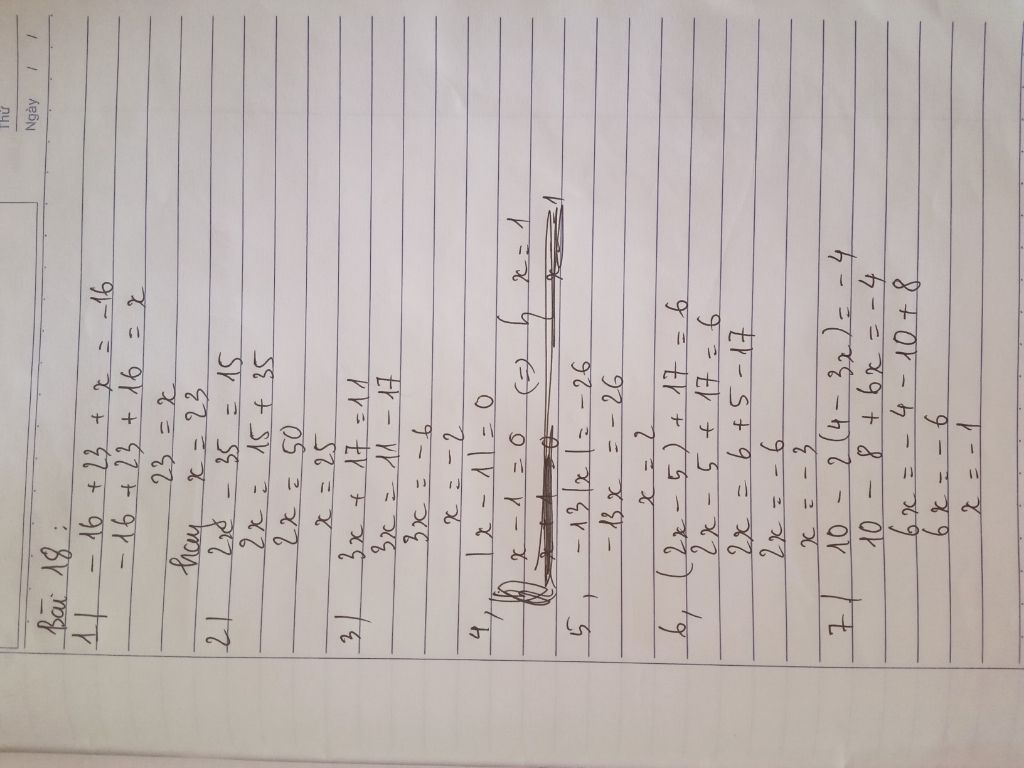 Thứ
Ngày / /
Bài 18:
1/ - 16 + 23 + x = -16
- 16 + 23 + 16 = x
23 = x
hay x = 23
2/ 2x - 35 = 15
2x = 15 + 35
2x = 50
x = 25
3/ 3x + 17 = 11
3x = 11 - 17
3x = - 6
x = - 2
4, |x - 1| = 0
x - 1 = 0 (=) { x = 1
5, - 13 |x| = - 26
- 13x = - 26
x = 2
6, (2x - 5) + 17 = 6
2x - 5 + 17 = 6
2x = 6 + 5 - 17
2x = - 6
x = - 3
7/ 10 - 2(4 - 3x) = - 4
10 - 8 + 6x = - 4
6x = - 4 - 10 + 8
6x = - 6
x = - 1